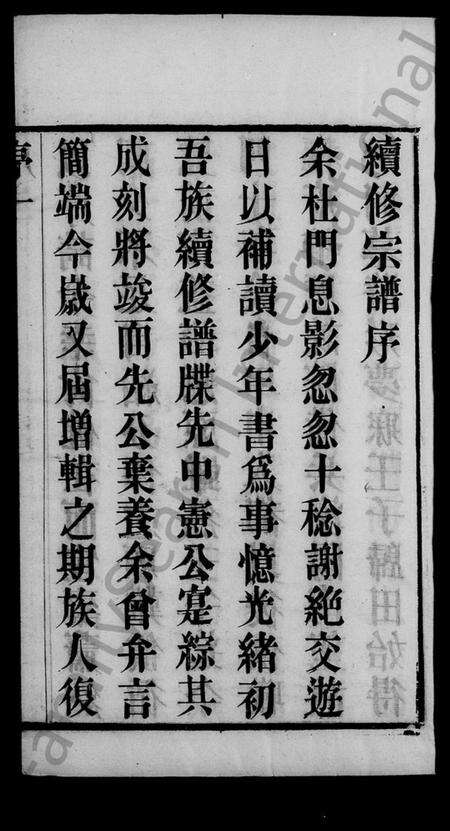 續修宗譜序
余杜門息影忽忽十稔謝絶交遊
日以補讀少年書爲事憶光緒初
吾族續修譜牒先中憲公寔綜其
成刻將竣而先公棄養余曾弁言
簡端今嵗又屆增輯之期族人復
序一